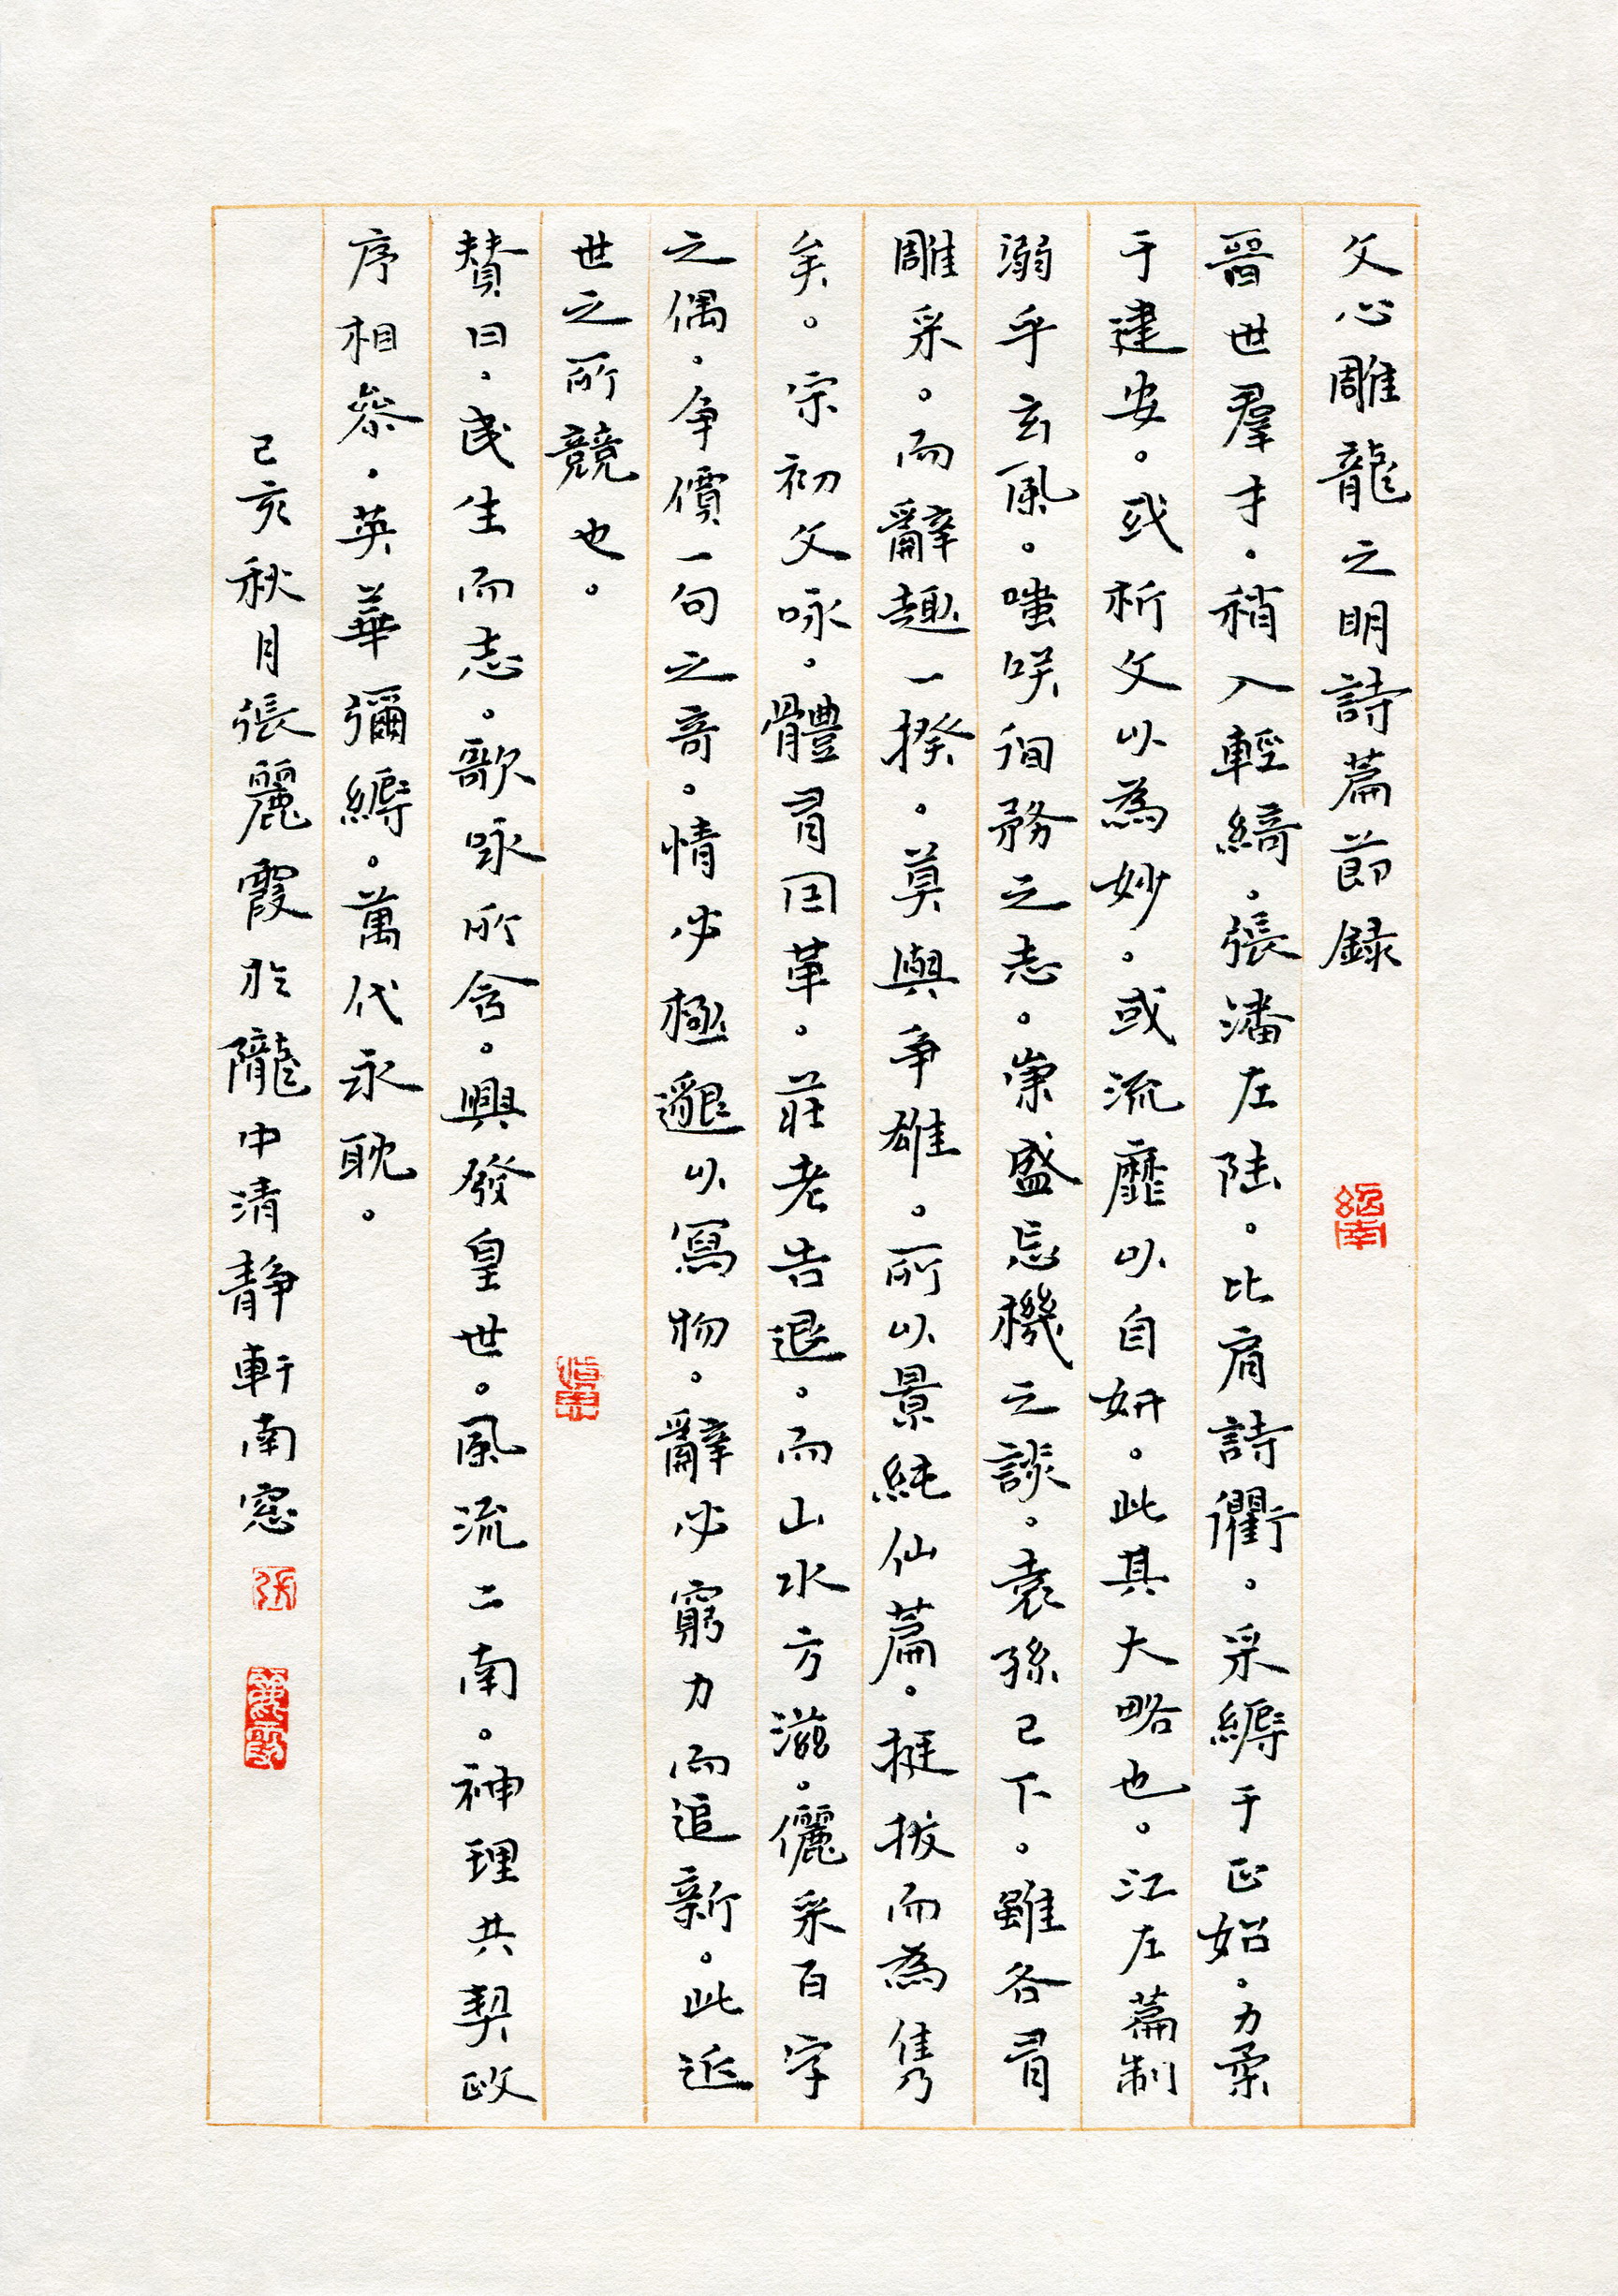 文心雕龍之明詩篇節錄
晉世羣才。稍入輕綺。張潘左陸。比肩詩衢。采縟于正始。力柔
于建安。或析文以為妙。或流靡以自妍。此其大略也。江左篇制
溺乎玄風。嗤咲徇務之志。崇盛忘機之談。袁孫已下。雖各有
雕采。而辭趣一揆。莫與爭雄。所以景純仙篇。挺拔而為雋
矣。宋初文咏。體有因革。莊老告退。而山水方滋。儷采百字
之偶。爭價一句之奇。情必極邈以寫物。辭必窮力而追新。此近
世之所競也。
贊曰。民生而志。歌咏所含。興發皇世。風流二南。神理共契政
序相參。英華彌縟。萬代永耽。
己亥秋月張麗霞於隴中清靜軒南窓
張
麗霞